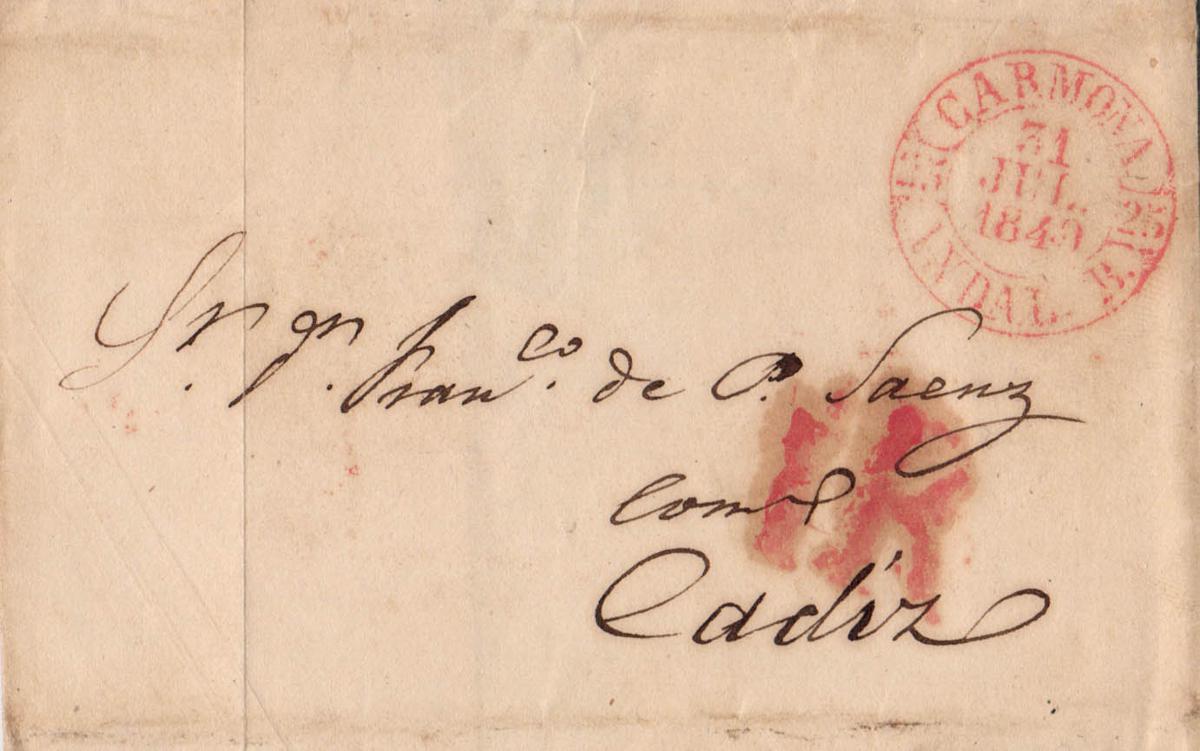 CARMONA
31
JUL.
1849
ANDAL. B.
Sr. Dn. Franco. de P. Saenz
Cadiz